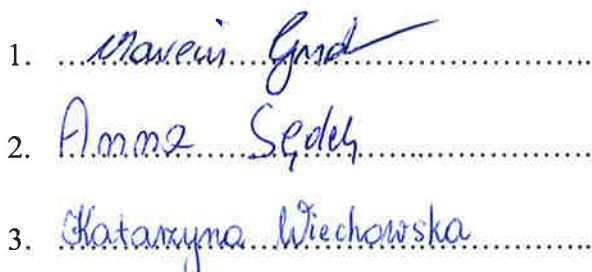 1. Marcin
2. Anna Sędek
3. Katarzyna Wiechowska